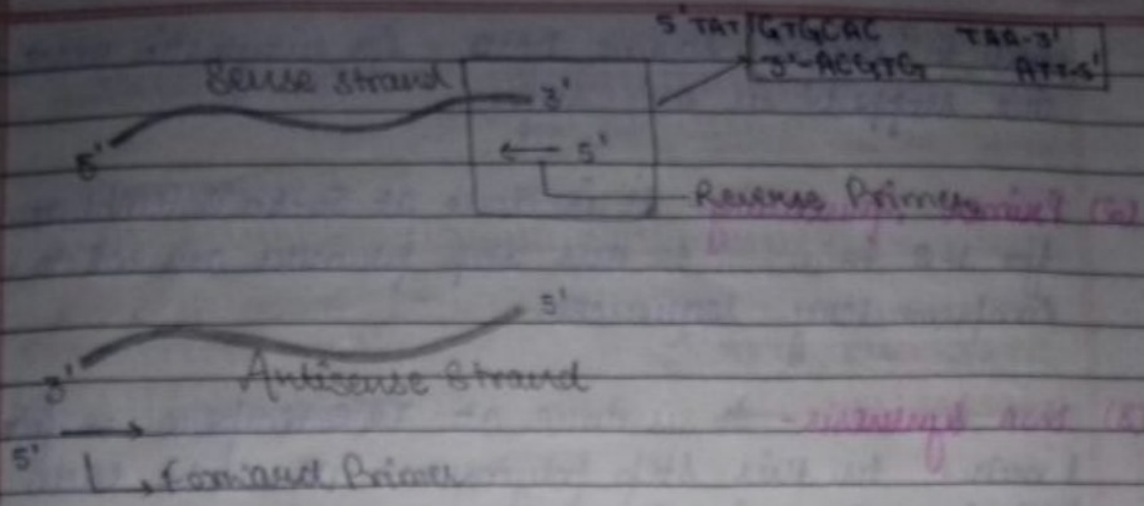 5' TAT GTGCAC TAA-3'
3'-ACGTG ATT-5'
Sense strand
3'
5'
5'
Reverse Primer
5'
3'
Antisense Strand
5'
Forward Primer